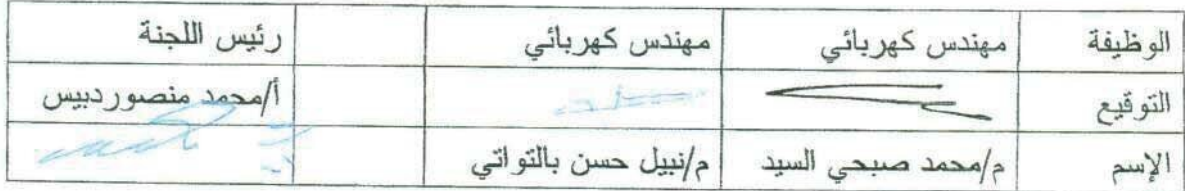 الوظيفة مهندس كهربائي مهندس كهربائي رئيس اللجنة
التوقيع أ/محمد منصور دبيس
الإسم م/محمد صبحي السيد م/نبيل حسن بالتواتي